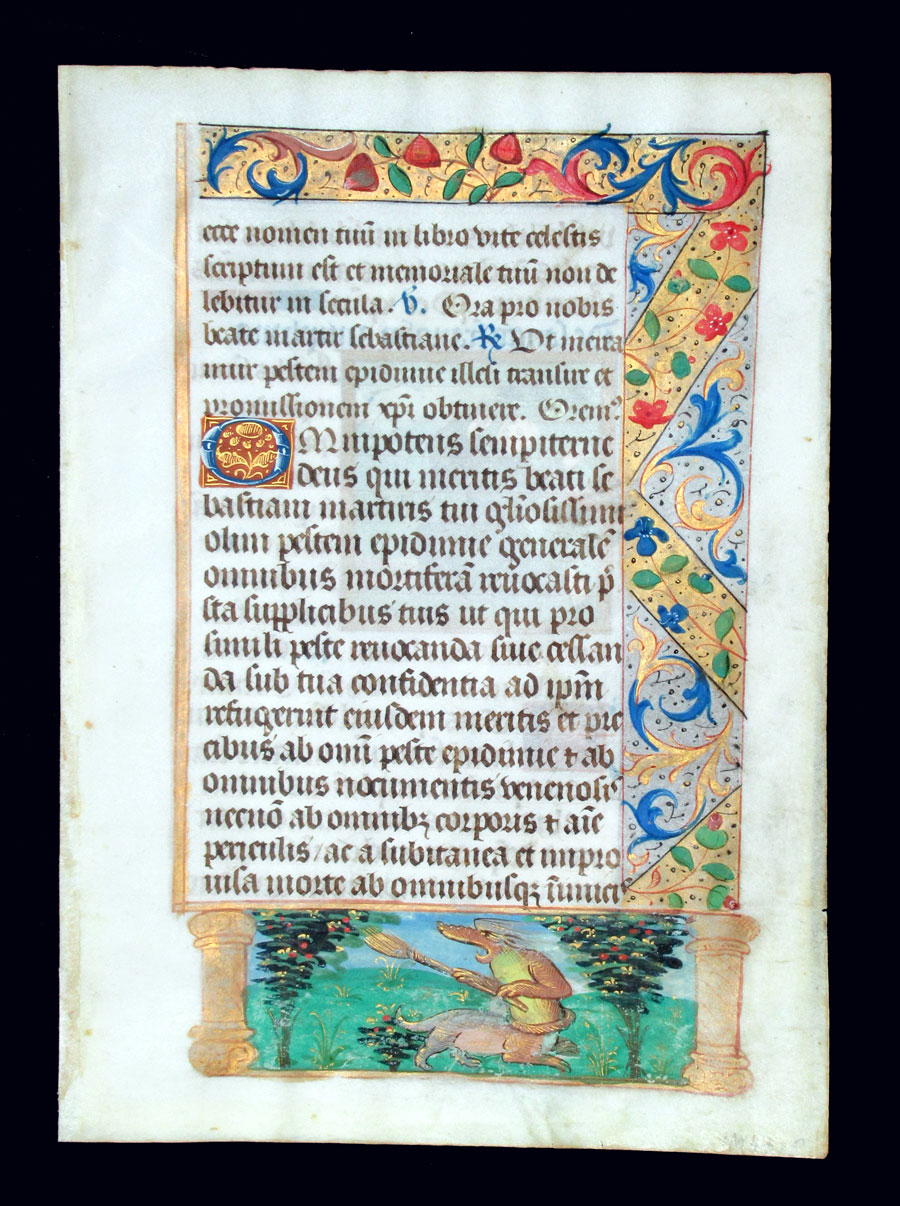 ecce nomen tuū in libro vite celestis
scriptum est et memoriale tuū non de
lebitur in secula. ℣. Ora pro nobis
beate martir sebastiane. ℟ Ut mera
mur pestem epidimie illesi transire et
promissionem xp̄i obtinere. Orem⁹.
OMnipotens sempiterne
deus qui meritis beati se
bastiani martiris tui gl̄iosissimi
olim pestem epidimie generalē
omnibus mortiferā reuocasti p̄
sta supplicibus tuis ut qui pro
simili peste reuocanda siue cessan
da sub tua confidentia ad ipm̄
refugerint eiusdem meritis et pre
cibus ab omī peste epidimie ⁊ ab
omnibus nocumentis venenosis
necnō ab omnibꝫ corporis ⁊ aīe
periculis / ac a subitanea et impro
uisa morte ab omnibusqꝫ inimicis